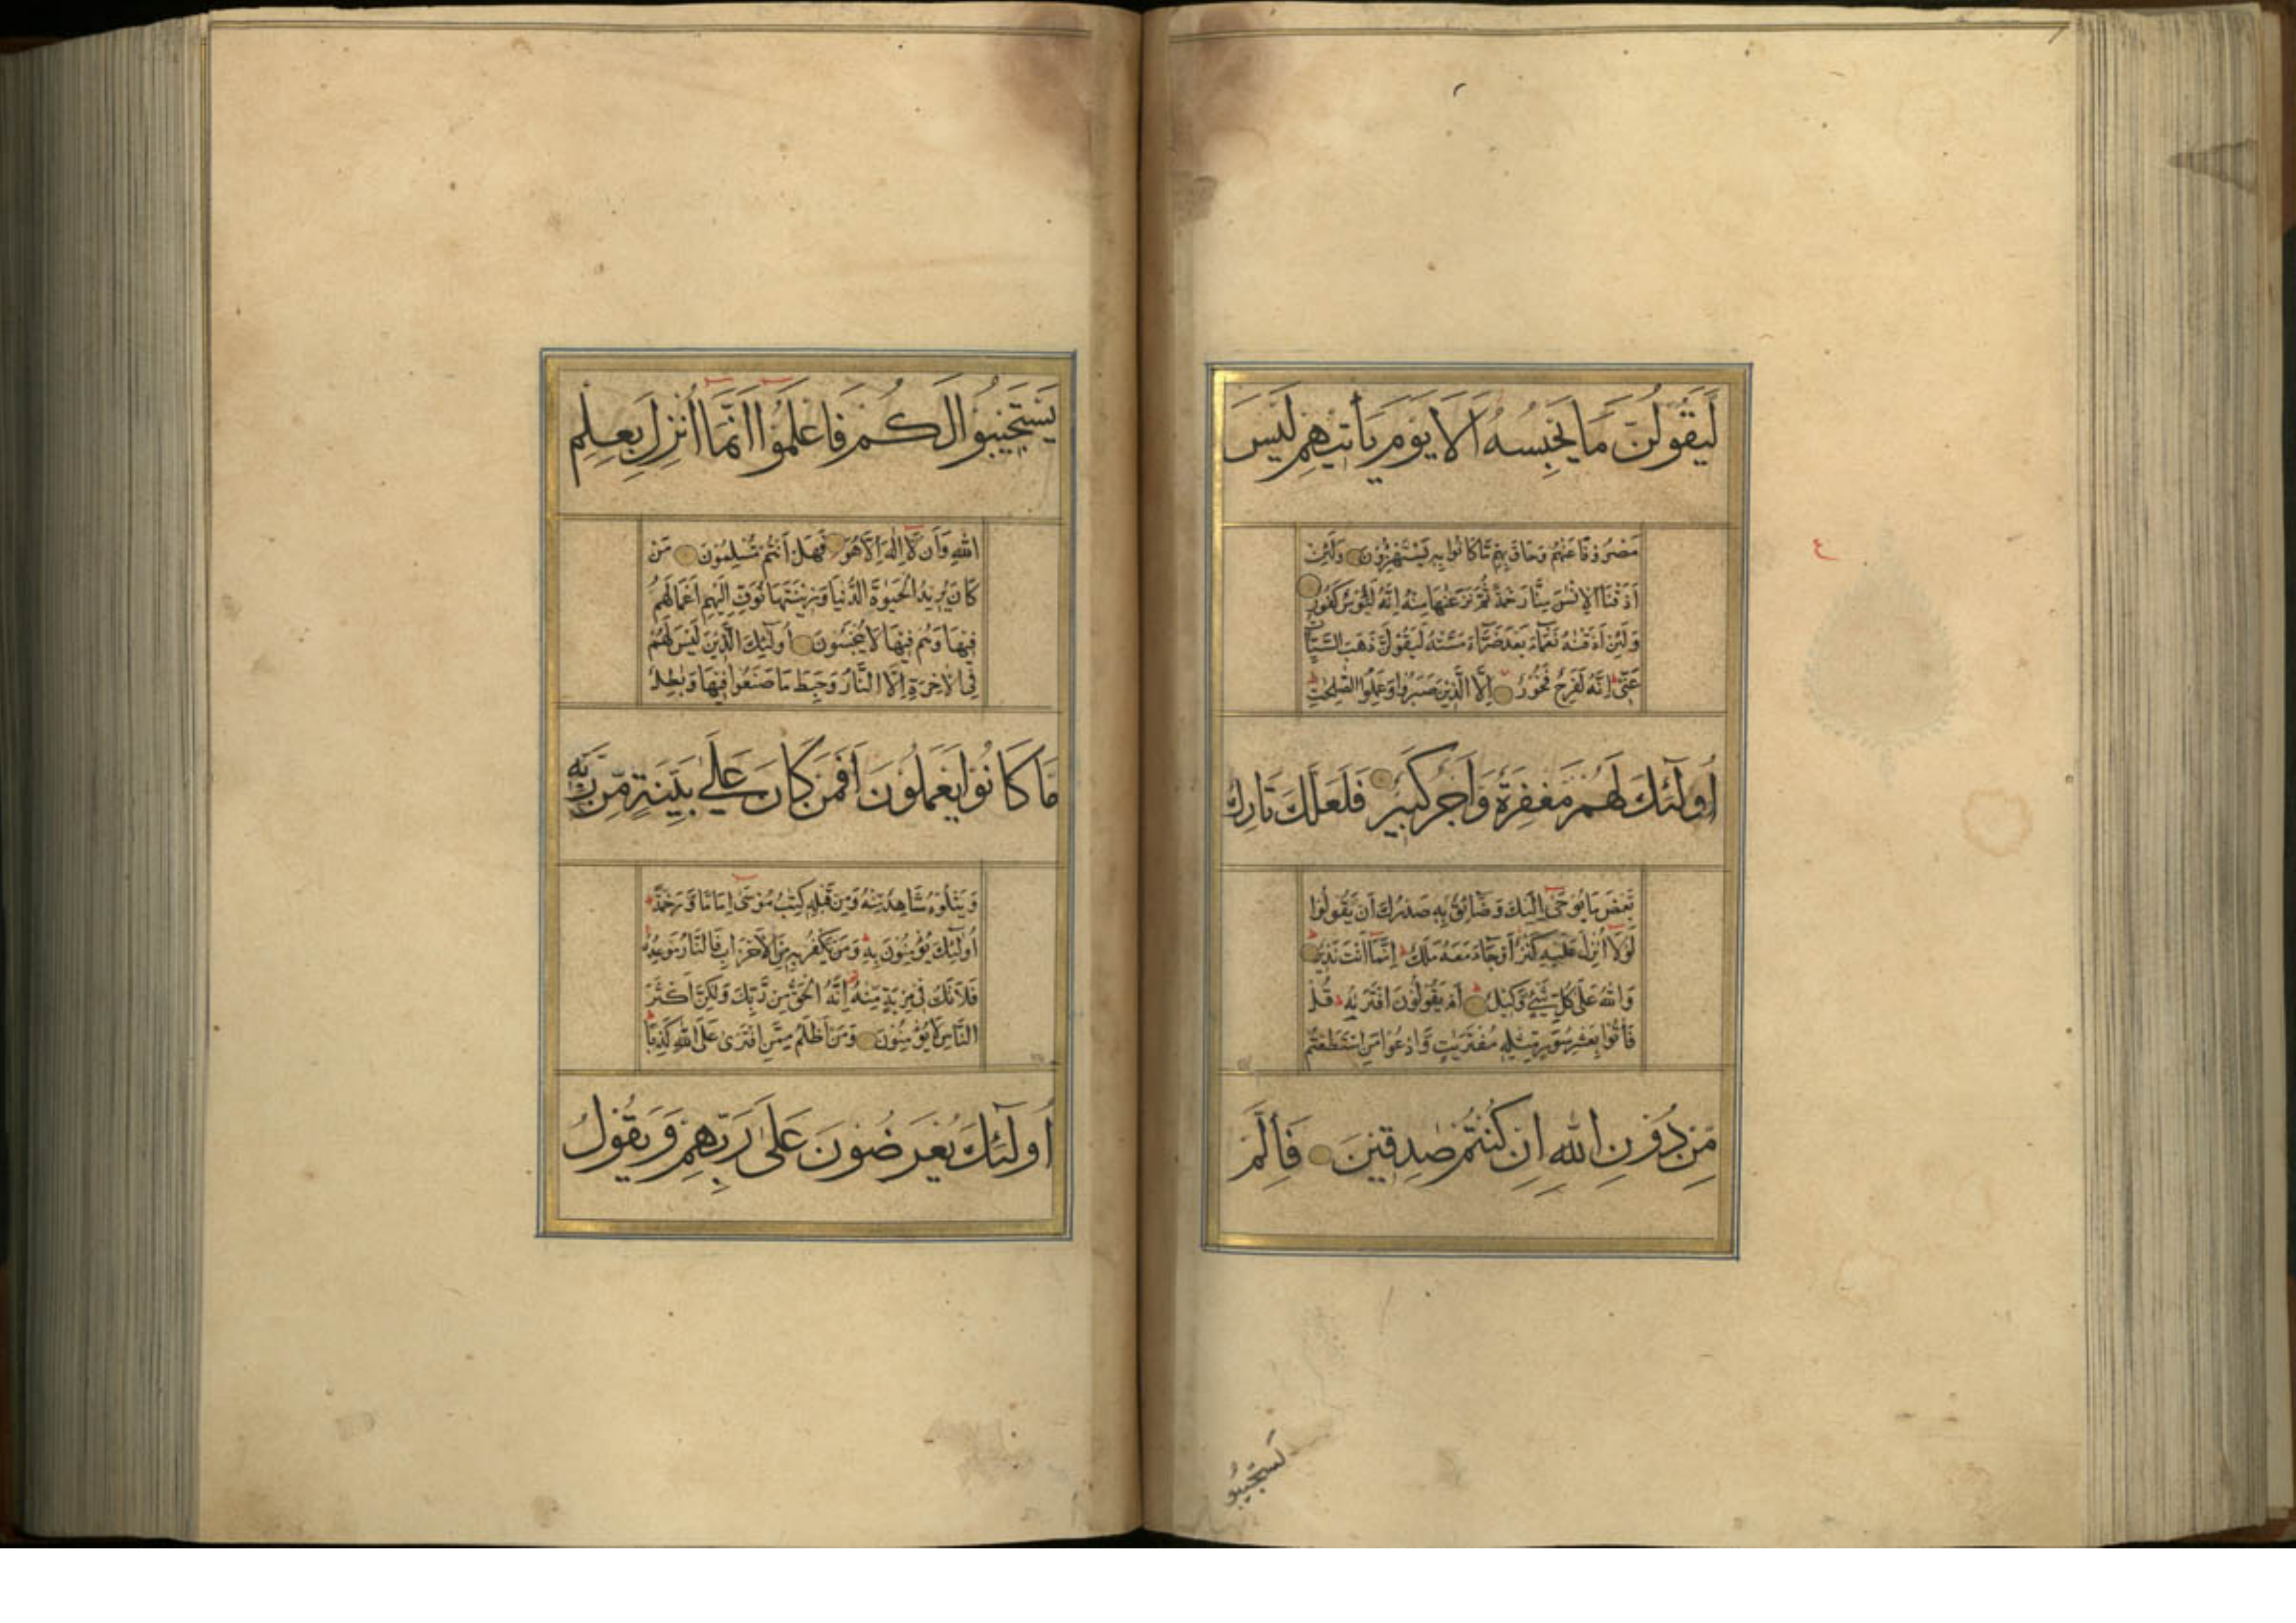 لَيَقُولُنَّ مَا يَحْبِسُهُ اَلَا يَوْمَ يَأْتِيهِمْ لَيْسَ
مَصْرُوْفًا عَنْهُمْ وَحَاقَ بِهِمْ مَّا كَانُوا بِهِ يَسْتَهْزِؤُنَ وَلَئِنْ
اَذَقْنَا الْاِنْسَ مِنَّا رَحْمَةً ثُمَّ نَزَعْنٰهَا مِنْهُ اِنَّهُ لَيَؤُسٌ كَفُورٌ
وَلَئِنْ اَذَقْنٰهُ نَعْمَآءَ بَعْدَ ضَرَّآءَ مَسَّتْهُ لَيَقُوْلَنَّ ذَهَبَ السَّيِّاٰتُ
عَنِّى اِنَّهُ لَفَرِحٌ فَخُوْرٌ اِلَّا الَّذِيْنَ صَبَرُوا وَعَمِلُوا الصّٰلِحٰتِ
اُولٰٓئِكَ لَهُمْ مَغْفِرَةٌ وَاَجْرٌ كَبِيْرٌ فَلَعَلَّكَ تَارِكٌ
بَعْضَ مَا يُوْحٰى اِلَيْكَ وَضَآئِقٌ بِهِ صَدْرُكَ اَنْ يَّقُوْلُوْا
لَوْلَآ اُنْزِلَ عَلَيْهِ كَنْزٌ اَوْ جَآءَ مَعَهُ مَلَكٌ اِنَّمَآ اَنْتَ نَذِيْرٌ
وَاللّٰهُ عَلٰى كُلِّ شَيْءٍ وَّكِيْلٌ اَمْ يَقُوْلُوْنَ افْتَرٰىهُ قُلْ
فَأْتُوْا بِعَشْرِ سُوَرٍ مِّثْلِهِ مُفْتَرَيٰتٍ وَّادْعُوْا مَنِ اسْتَطَعْتُمْ
مِّنْ دُوْنِ اللّٰهِ اِنْ كُنْتُمْ صٰدِقِيْنَ فَاِلَّمْ
يستجيبو
يَسْتَجِيْبُوْا لَكُمْ فَاعْلَمُوْٓا اَنَّمَآ اُنْزِلَ بِعِلْمِ
اللّٰهِ وَاَنْ لَّآ اِلٰهَ اِلَّا هُوَ فَهَلْ اَنْتُمْ مُّسْلِمُوْنَ مَنْ
كَانَ يُرِيْدُ الْحَيٰوةَ الدُّنْيَا وَزِيْنَتَهَا نُوَفِّ اِلَيْهِمْ اَعْمَالَهُمْ
فِيْهَا وَهُمْ فِيْهَا لَا يُبْخَسُوْنَ اُولٰٓئِكَ الَّذِيْنَ لَيْسَ لَهُمْ
فِى الْاٰخِرَةِ اِلَّا النَّارُ وَحَبِطَ مَا صَنَعُوْا فِيْهَا وَبٰطِلٌ
مَّا كَانُوْا يَعْمَلُوْنَ اَفَمَنْ كَانَ عَلٰى بَيِّنَةٍ مِّنْ رَبِّهِ
وَيَتْلُوْهُ شَاهِدٌ مِّنْهُ وَمِنْ قَبْلِهِ كِتٰبُ مُوْسٰٓى اِمَامًا وَّرَحْمَةً
اُولٰٓئِكَ يُؤْمِنُوْنَ بِهِ وَمَنْ يَّكْفُرْ بِهِ مِنَ الْاَحْزَابِ فَالنَّارُ مَوْعِدُهُ
فَلَا تَكُ فِىْ مِرْيَةٍ مِّنْهُ اِنَّهُ الْحَقُّ مِنْ رَّبِّكَ وَلٰكِنَّ اَكْثَرَ
النَّاسِ لَا يُؤْمِنُوْنَ وَمَنْ اَظْلَمُ مِمَّنِ افْتَرٰى عَلَى اللّٰهِ كَذِبًا
اُولٰٓئِكَ يُعْرَضُوْنَ عَلٰى رَبِّهِمْ وَيَقُوْلُ